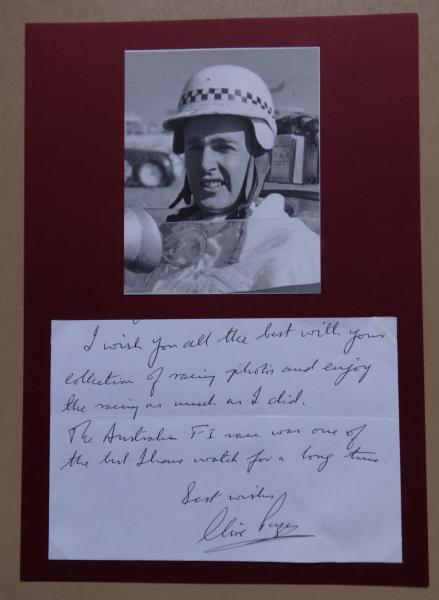 I wish you all the best with your
collection of racing photos and enjoy
the racing as much as I did.
The Australian F-1 race was one of
the best I have watch for a long time.
Best wishes
Clive